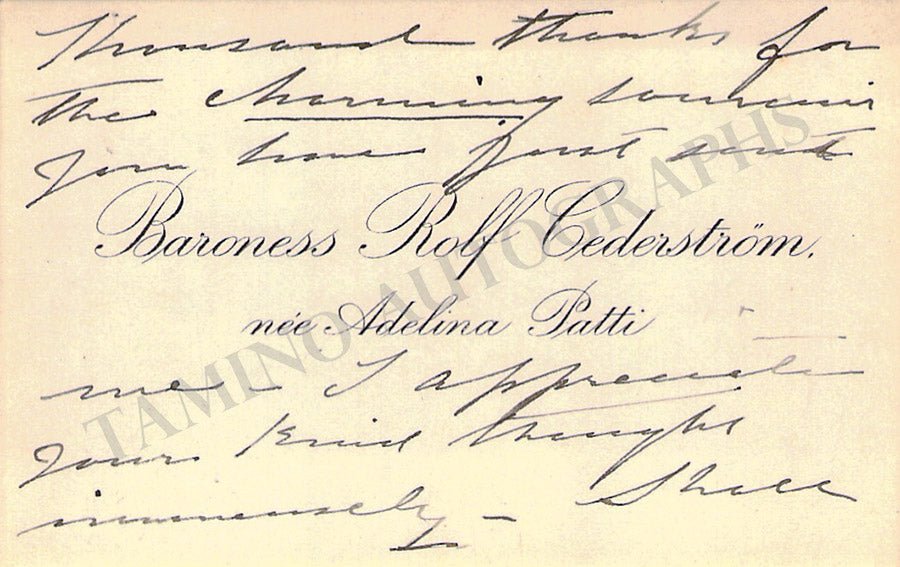 Thousand thanks for
the charming souvenir
you have just sent
Baroness Rolf Cederström.
née Adelina Patti
me – I appreciate
your kind thought
immensely – Shall
TAMINO AUTOGRAPHS